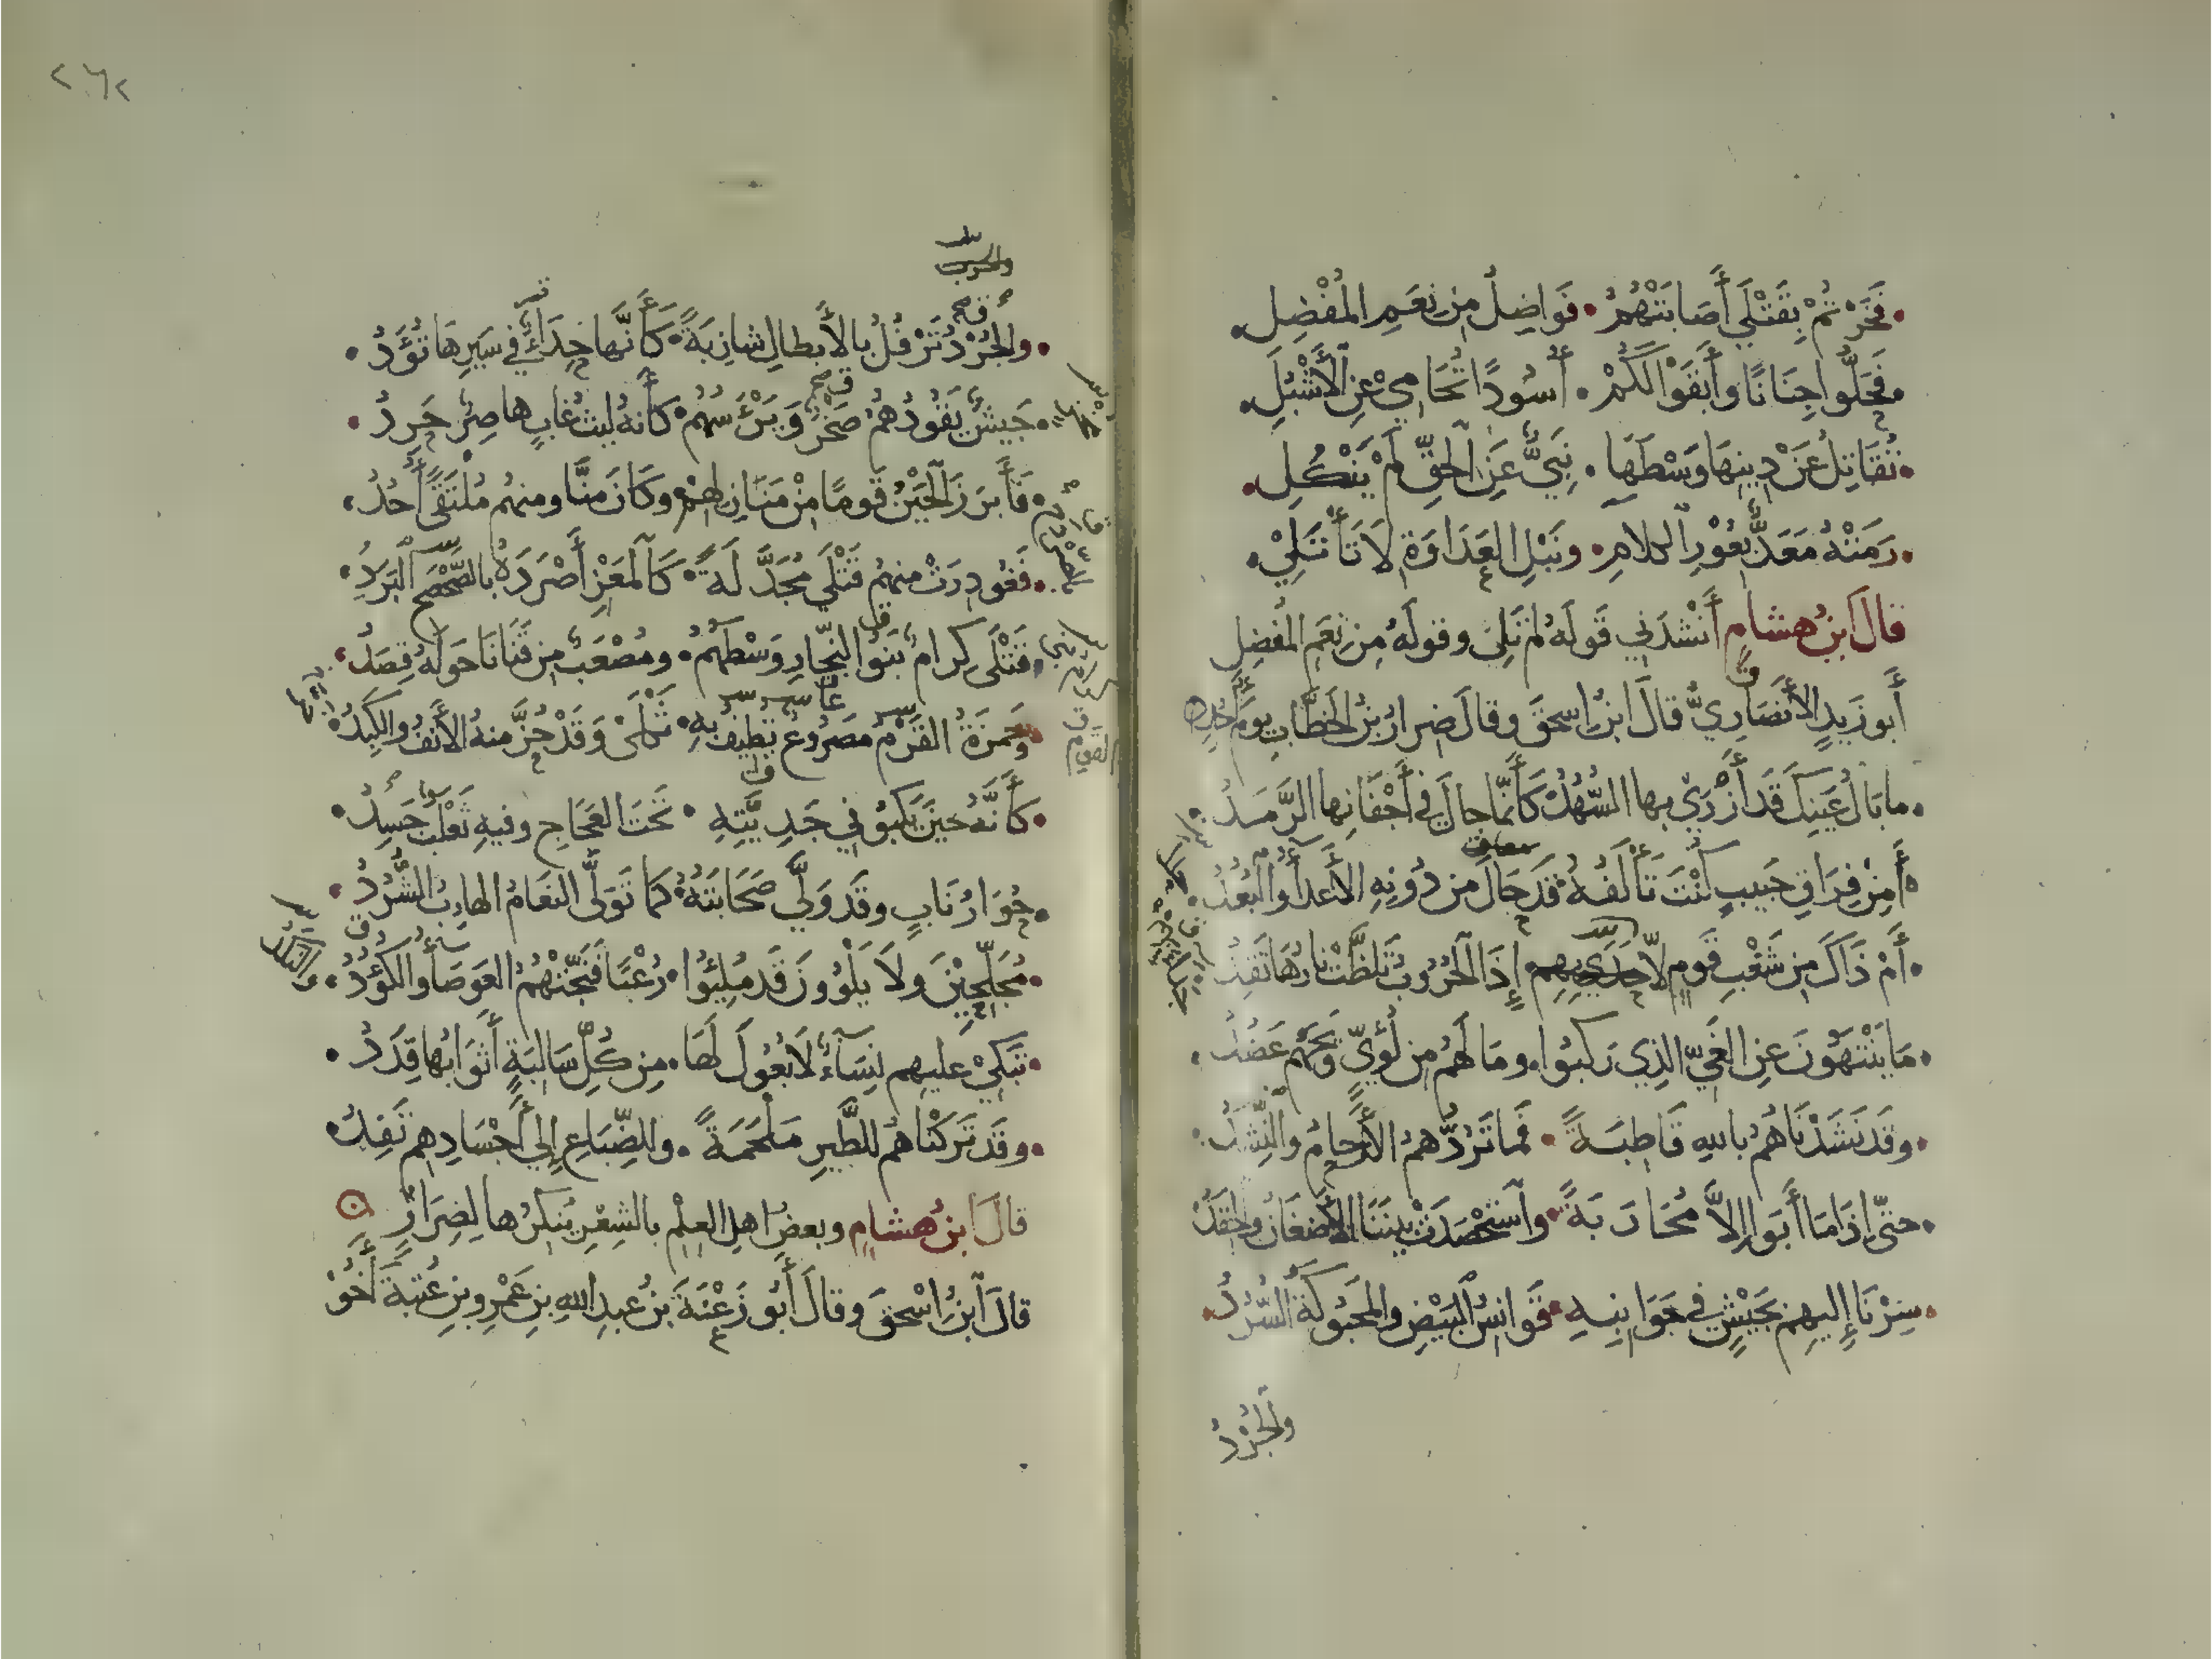 فَخَرْتُمْ بِقَتْلَي أَصَابَتْهُمُ • فَوَاضِلُ مِن نِعَمِ المُفْضِلِ
فَحَلُّوا جِنَانًا وَأَبقَوْا لَكُمْ • أُسُودًا تُحَامِي عَنِ الأَشْبُلِ
تُقَاتِلُ عَنْ دِينِهَا وَسْطَهَا • نَبِيٌّ عَنِ الحَقِّ لَمْ يَنْكُلِ
رَمَتْهُ مَعَدٌّ بِعُوْرِ الكلامِ • ونَبْلِ العَدَاوَةِ لَا تَأْتَلِيْ
قالَ ابنُ هشامٍ أَنْشدَنِي قَولَهُ لم تَلِي وقولَهُ مِن نِعَمِ المُفضِلِ
أَبو زَيدٍ الأَنصَارِيُّ قالَ ابنُ اسحقَ وقالَ ضِرارُ بنُ الخطَّابِ يومَ أُحُدٍ
ما بَالُ عَينِكَ قَد أَزْرَيْ بها السُّهُدُ كَأَنَّما جالَ في أَجْفَانِها الرَّمَدُ
أَمِنْ فِرَاقِ حَبِيبٍ كُنْتَ تَأْلَفُهُ قَد حَالَ من دُونِهِ الأَعدَآءُ والبُعُدُ
أَمْ ذَاكَ مِن شَغْبِ قَومٍ لا جَدَيْ بِهِم • إِذَا الحُرُوبُ تَلَظَّتْ نارُهَا تَقِدُ
مَا يَنْتَهُوْنَ عَنِ الغَيِّ الذِي رَكِبُوا • ومَا لَهُم مِن لُؤَيٍّ وَيْحَهُم عَضُدُ
وقَد نَشَدْنَاهُمُ باللهِ قَاطِبَةً • فَما تَرُدُّهمُ الأَرحامُ والنِّشَدُ
حتّى إذَا مَا أَبَوا إِلاَّ مُحَارَبَةً • وآسْتَحْصَدَتْ بينَنَا الأَضغَانُ والحِقَدُ
سِرْنَا إِليهِم بِجَيْشٍ في جَوَانِبِهِ • قَوَانِسُ البَيْضِ والمَحبُوكَةُ السُّرُدُ
والجُرْدُ
٢٦٢
والجُرْدُ تَرْفُلُ بالأَبطالِ شازِبَةً • كَأَنَّها حِدَأٌ في سَيرِهَا تُؤَدُ
جَيشٌ يَقُودُهُمُ صَخْرٌ وَيَرْأَسُهُمْ • كَأَنهُ ليثُ غابٍ هاصِرٌ حَرِدُ
فَأَبرَزَ الحَيْنُ قَومًا مِنْ مَنَازِلِهِمْ • وكَانَ مِنَّا ومنهُم مُلتَقًى أُحُدُ
فَغُودِرَتْ منهُمُ قَتْلَي مُجَدَّلَةً • كَالمَعْزِ أَصْرَدَهُ بالصَّحْصَحِ البَرَدُ
قَتْلَى كِرامٌ بَنَوُا النجّارِ وَسْطَهُمُ • ومُصْعَبٌ مِن قَنَانَا حَولَهُ قِصَدُ
وحَمزَةُ القَرْمُ مَصرُوعٌ تُطِيفُ بِهِ • ثَكْلَى وَقَدْ حُزَّ منهُ الأَنفُ والكَبِدُ
كَأَنَّهُ حِينَ يَكبُو في جَدِيَّتِهِ • تَحتَ العَجَاجِ وفيهِ ثَعْلَبٌ جَسِدُ
حُوَارُ نَابٍ وقَد وَلَّي صَحَابَتُهُ • كَما تَوَلَّى النعَامُ الهارِبُ الشُّرُدُ
مُجَلِّحِيْنَ ولَا يَلْوُونَ قَد مُلِئُوا • رُعْبًا فَنَجَّتْهُمُ العَوصَآءُ والكُؤُدُ
تَبكي عليهم نِسَآءٌ لَا بُعُولَ لَهَا • مِن كُلِّ سَالِبَةٍ أَثوَابُها قِدَدُ
وقَد تَرَكنَاهُمُ للطَّيرِ مَلْحَمَةً • وللضِّبَاعِ إِلي أَجْسَادِهِم تَفِدُ
قالَ ابنُ هشامٍ وبعضُ اهلِ العِلْمِ بالشِعْرِ يُنكِرُها لِضِرَارٍ
قالَ ابنُ اسْحقَ وقالَ أَبُو زَعْنَةَ بنُ عبدِ اللهِ بنِ عَمْرِو بنِ عُتبَةَ أَخُوْ